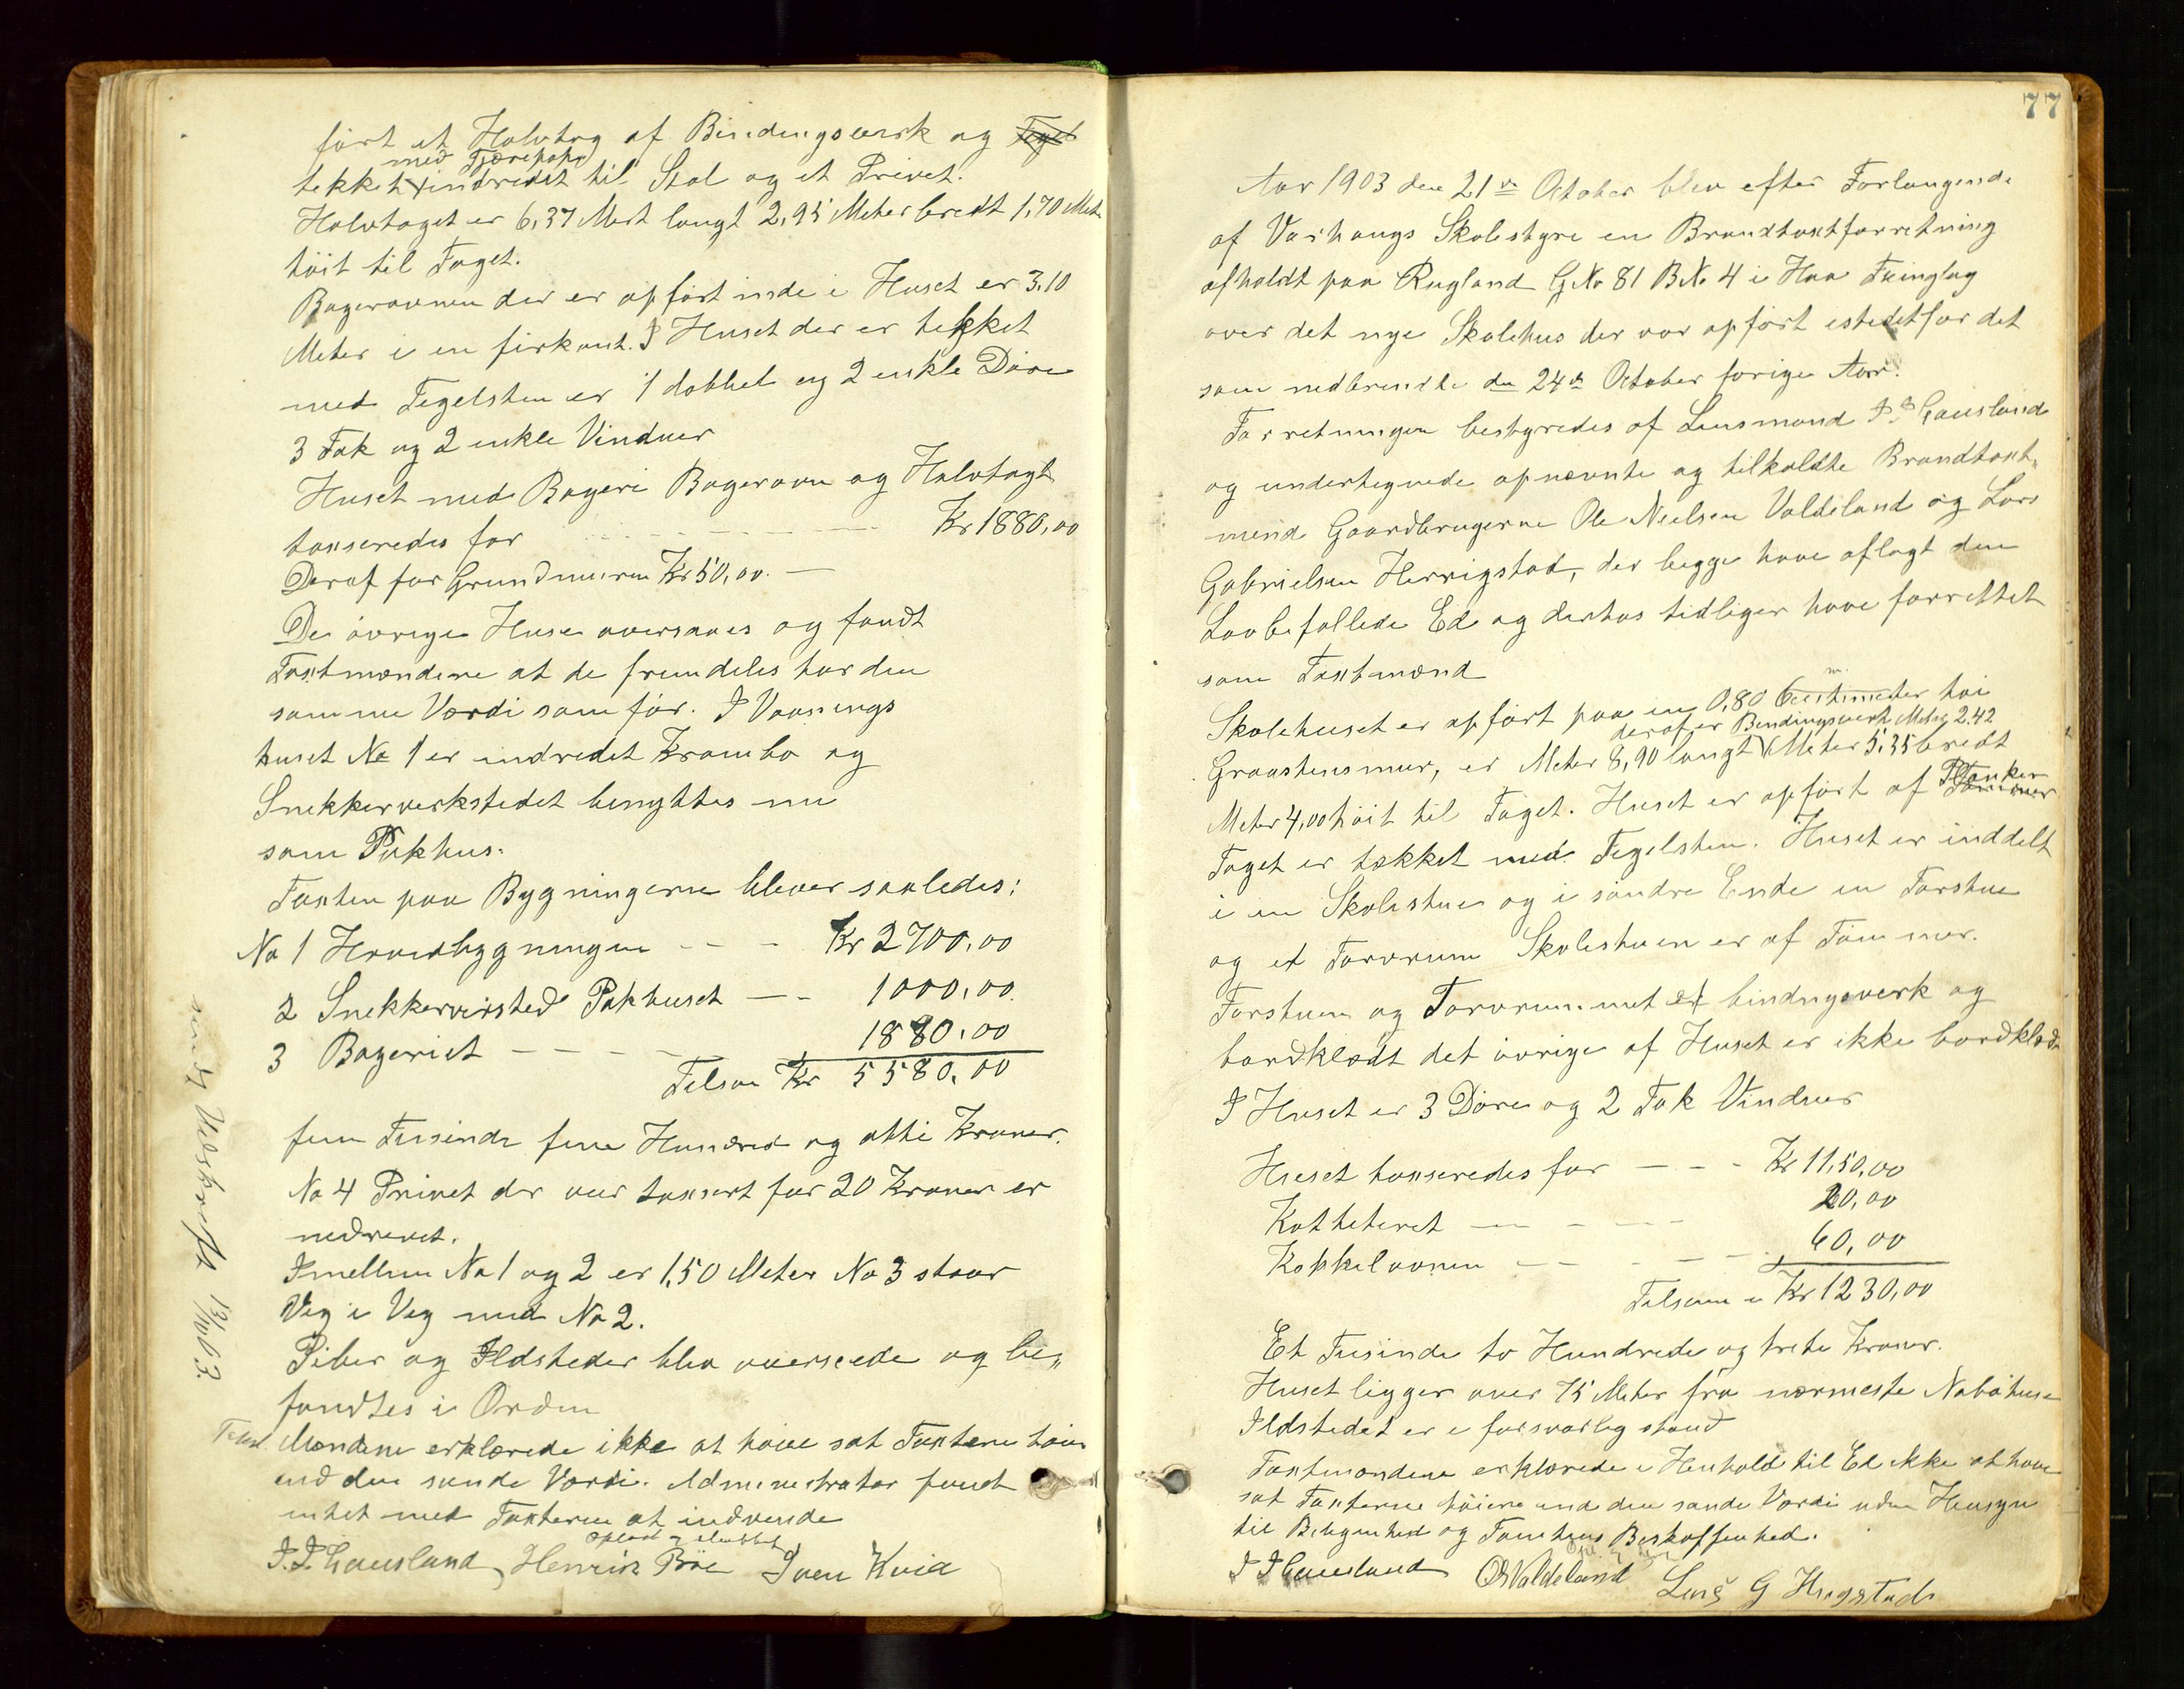 ført et Halvtag af Bindingsverk og Tegel
med Tjærepap
tekket indredet til Stal og et Privet.
Halvtaget er 6,37 Met langt 2,95 Meter bredt 1,70 Met
høit til Taget.
Bagerovnen der er opført inde i Huset er 3,10
Meter i en firkant. I Huset der er tekket
med Tegelsten er 1 dobbel og 2 enkle Døre
3 Fak og 2 enkle Vinduer
Huset med Bageri Bagerovn og Halvtagt
taxseredes for - - - - Kr 1880,00
Deraf for Grundmuren Kr 50,00. —
De øvrige Huse oversaaes og fandt
Taxtmændene at de fremdeles har den
samme Værdi som før. I Vaanings
huset No 1 er indredet Krambo og
Snekkerverkstedet benyttes nu
som Pakhus.
Taxten paa Bygningerne bliver saaledes:
No 1 Hovedbygningen - - - Kr 2700,00
2 Snekkerversted Pakhuset — - 1000,00.
3 Bageriet - - - - - 1880,00
Tilsam Kr 5580,00
fem Tusinde fem Hundred og otti Kroner.
No 4 Privet der var taxsert for 20 Kroner er
nedrevet.
Imellem No 1 og 2 er 1,50 Meter No 3 staar
Veg i Veg med No 2.
Piber og Ildsteder blev overseede og be„
fandtes i Orden
Mændene erklærede ikke at have sat Taxtene høiere
end den sande Værdi. Administrator fandt
intet med Taxterne at indvende
J. J. Gausland, Henrik Bøe Sven Kvia
sendt Udskrift 13/10 03.
77
Aar 1903 den 21de October blev efter Forlangende
af Varhaugs Skolestyre en Brandtaxtforretning
afholdt paa Rugland G No 81 B No 4 i Haa Thinglag
over det nye Skolehus der var opført istedetfor det
som nedbrendte den 24de October forrige Aar.
Forretningen bestyredes af Lensmand J. J. Gausland
og undertegnede opnævnte og tilkaldte Brandtaxt„
mend Gaardbrugerne Ole Nielsen Valdeland og Lars
Gabrielsen Herrigstad, der begge have aflagt den
Lovbefallede Ed og derhos tidliger have forrettet
som Taxtmænd
Skolehuset er opført paa en 0,80 m. Centimeter høi
deraf er Bindingsverk Meter 2,42
Graastensmur, er Meter 8,90 langt Meter 5,35 bredt
Meter 4,00 høit til Taget. Huset er opført af Planker Tømmer
Taget er tækket med Tegelsten. Huset er inddelt
i en Skolestue og i søndre Ende en Forstue
og et Torvrum Skolestuen er af Tømmer.
Forstuen og Torvrummet er bindingsverk og
bordklædt det øvrige af Huset er ikke bordklædt
I Huset er 3 Døre og 2 Fak Vinduer
Huset taxseredes for - - - Kr 1150,00
Kattheteret - - - - 20,00
Kakkelovnen - - - - 60,00
Tilsam = Kr 1230,00
Et Tusinde to Hundrede og treti Kroner.
Huset ligger over 75 Meter fra nærmeste Nabohuse
Ildstedet er i forsvarlig stand
Taxtmændene erklærede i Henhold til Ed ikke at have
sat Taxterne høiere end den sande Værdi uden Hensyn
til Beligenhed og Tomtens Beskaffenhed.
J J Gausland O N Valdeland Lars G Herigstad